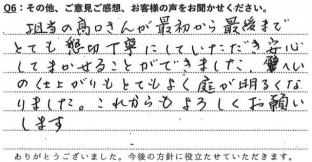 Q6：その他、ご意見ご感想、お客様の声をお聞かせください。
担当の高口さんが最初から最後まで
とても懇切丁寧にしていただき安心
してまかせることができました。
の仕上がりもとてもよく庭が明るくな
りました。これからもよろしくお願い
します
ありがとうございました。今後の方針に役立たせていただきます。